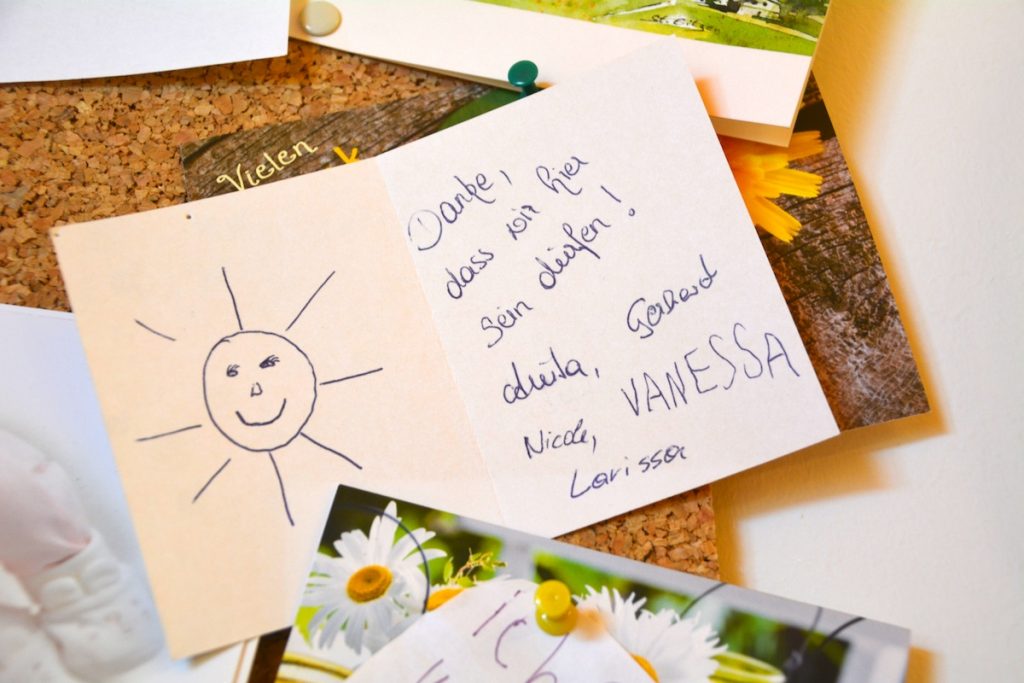 Vielen
Danke,
dass wir hier
sein dürfen!
Gerhard
VANESSA
Nicole,
Larissa
Ich